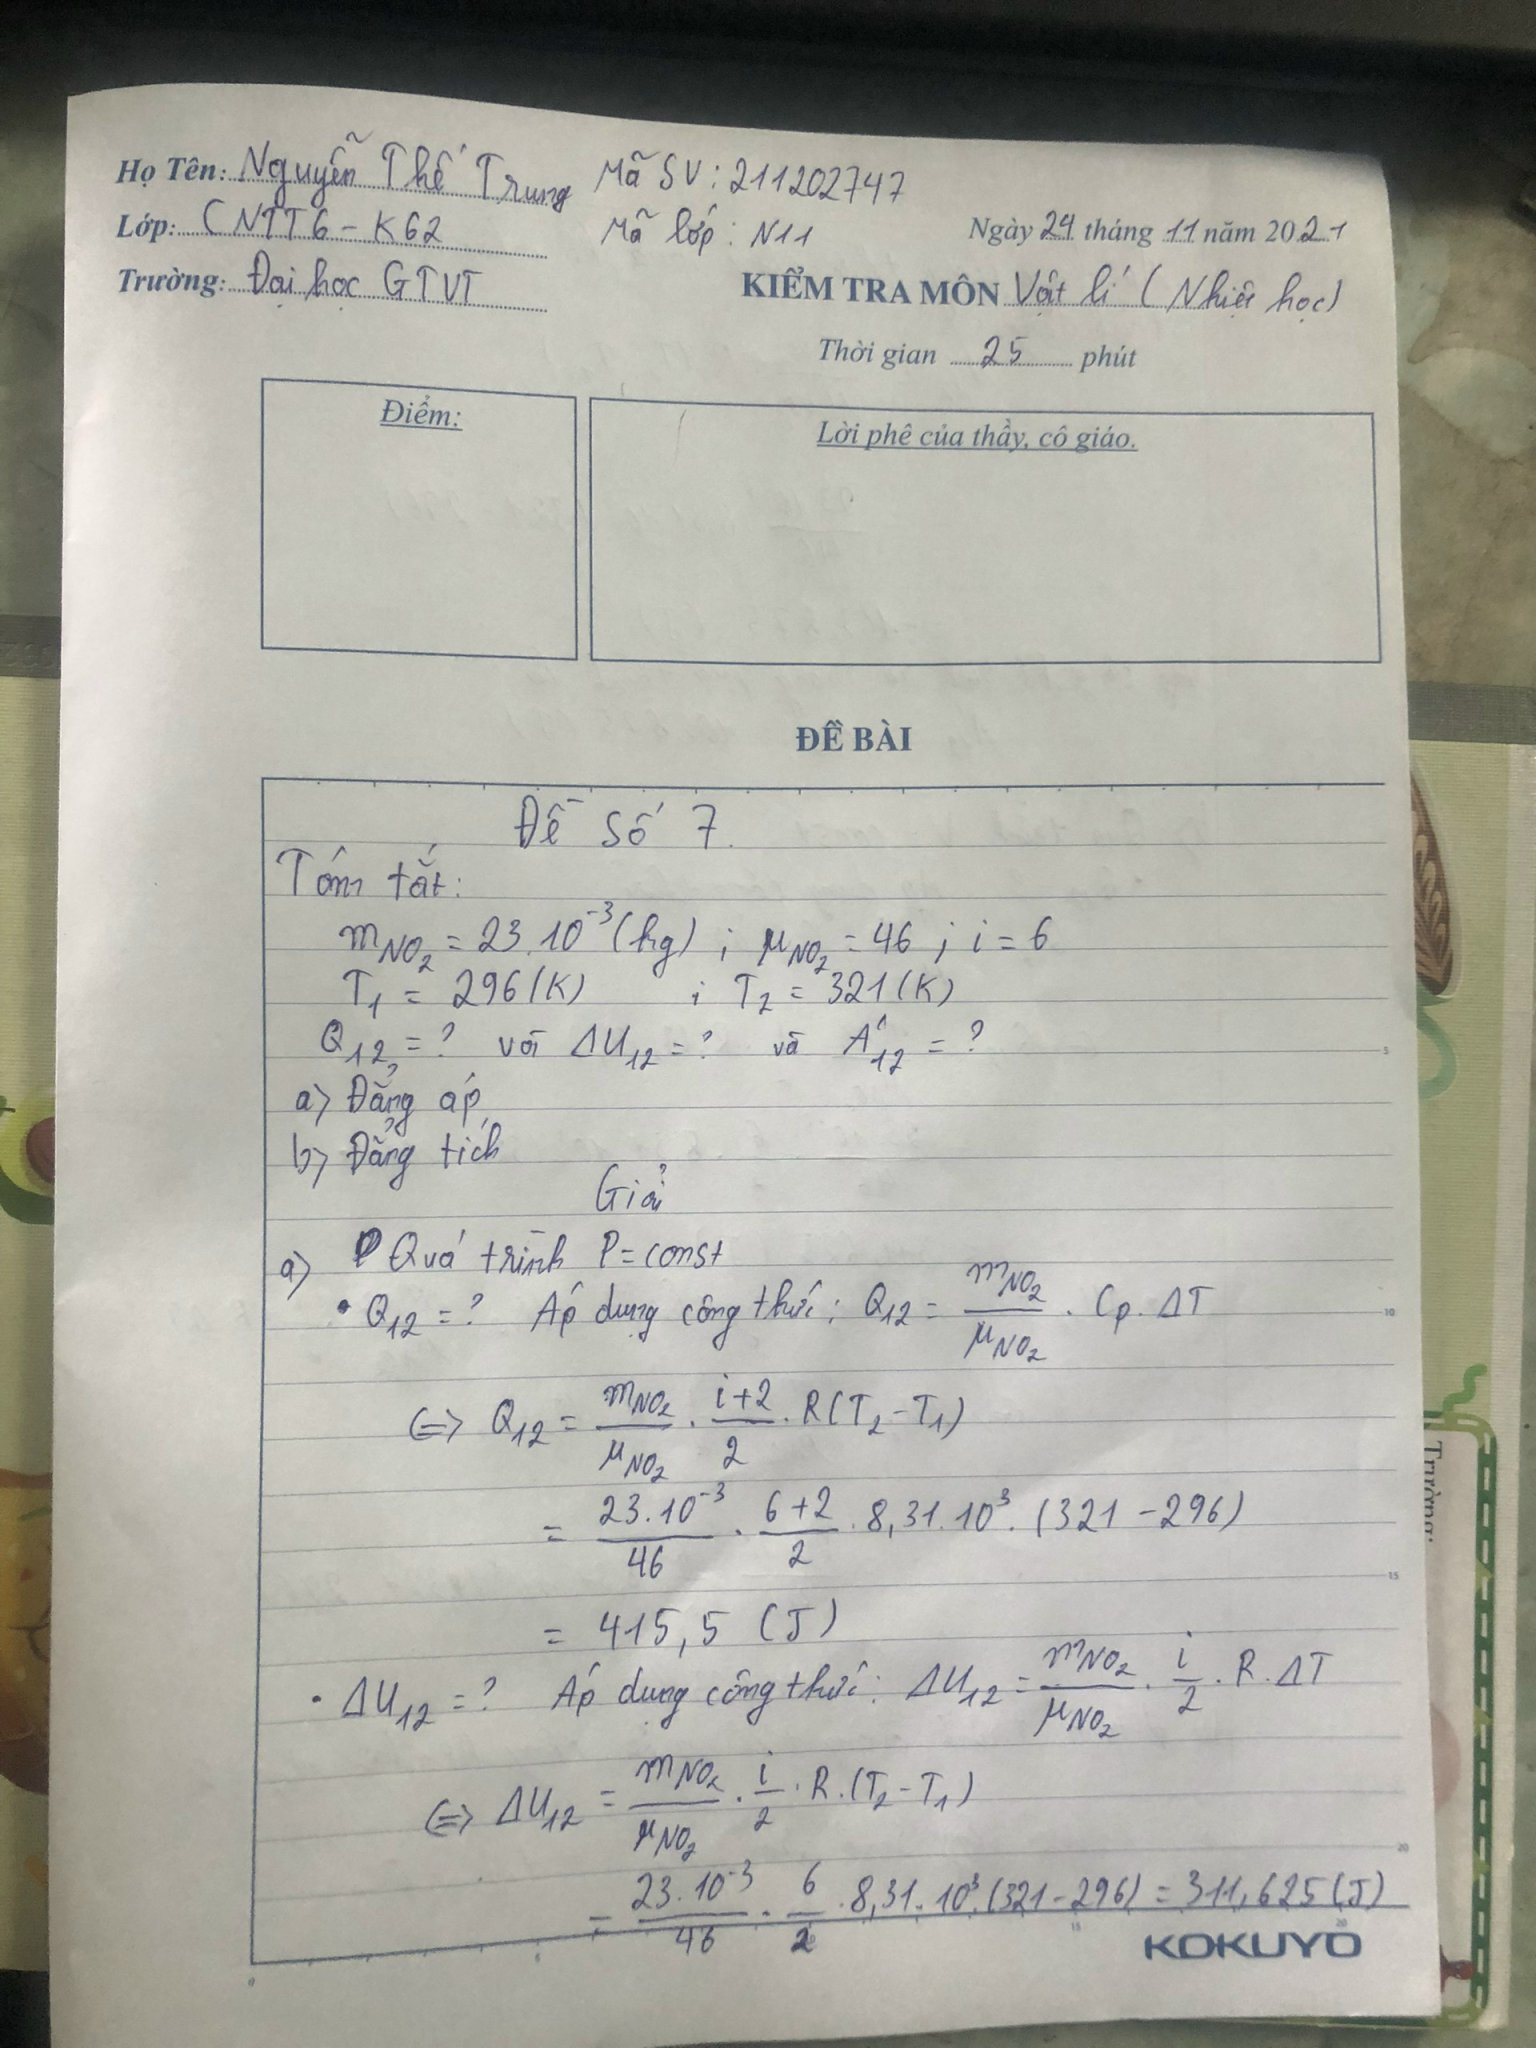 Họ Tên: Nguyễn Thế Trung Mã SV: 211202747
Lớp: CNTT6-K62 Mã lớp: N11 Ngày 24 tháng 11 năm 2021
Trường: Đại học GTVT
KIỂM TRA MÔN Vật lí (Nhiệt học)
Thời gian 25 phút
Điểm:
Lời phê của thầy, cô giáo.
ĐỀ BÀI
Đề số 7.
Tóm tắt:
m_NO₂ = 23.10⁻³ (kg) ; μ_NO₂ = 46 ; i = 6
T₁ = 296 (K) ; T₂ = 321 (K)
Q₁₂ = ? với ΔU₁₂ = ? và A'₁₂ = ?
a) Đẳng áp
b) Đẳng tích
Giải
a) Quá trình P = const
• Q₁₂ = ? Áp dụng công thức: Q₁₂ = m_NO₂/μ_NO₂ . Cp. ΔT
(=> Q₁₂ = m_NO₂/μ_NO₂ . (i+2)/2 . R(T₂ - T₁)
= 23.10⁻³/46 . (6+2)/2 . 8,31.10³. (321 - 296)
= 415,5 (J)
• ΔU₁₂ = ? Áp dụng công thức: ΔU₁₂ = m_NO₂/μ_NO₂ . i/2 . R. ΔT
(=> ΔU₁₂ = m_NO₂/μ_NO₂ . i/2 . R. (T₂ - T₁)
= 23.10⁻³/46 . 6/2 . 8,31.10³. (321 - 296) = 311,625 (J)
5
10
15
20
0
15
20
KOKUYO
Trường: